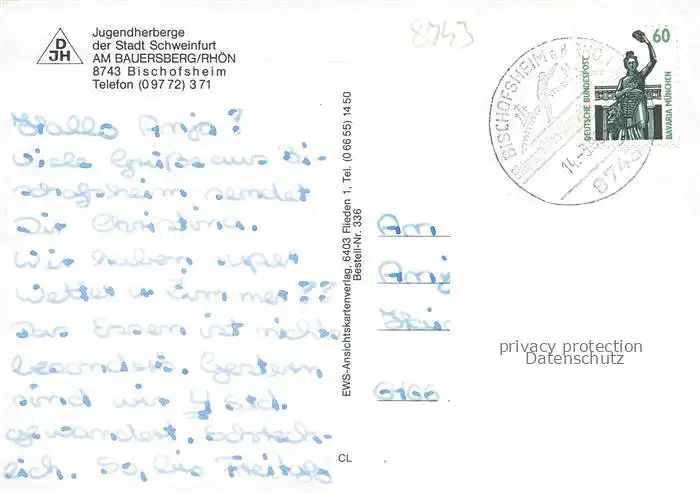 Jugendherberge
der Stadt Schweinfurt
AM BAUERSBERG/RHÖN
8743 Bischofsheim
Telefon (0 97 72) 3 71
DJH
8743
60
DEUTSCHE BUNDESPOST
BAVARIA MÜNCHEN
BISCHOFSHEIM a.d. RHÖN
14.-3.
8743
Hallo Anja!
Viele Grüße aus Bi-
schofsheim sendet
Dir Christina.
Wir haben super
Wetter u. Zimmer??
Das Essen ist nicht
besonders. Gestern
sind wir 4 Std.
gewandert. Schreck-
lich. So, bis Freitag
EWS-Ansichtskartenverlag, 6403 Flieden 1, Tel. (0 66 55) 14 50
Bestell-Nr. 336
CL
An
Anj
Hai
6466
privacy protection
Datenschutz